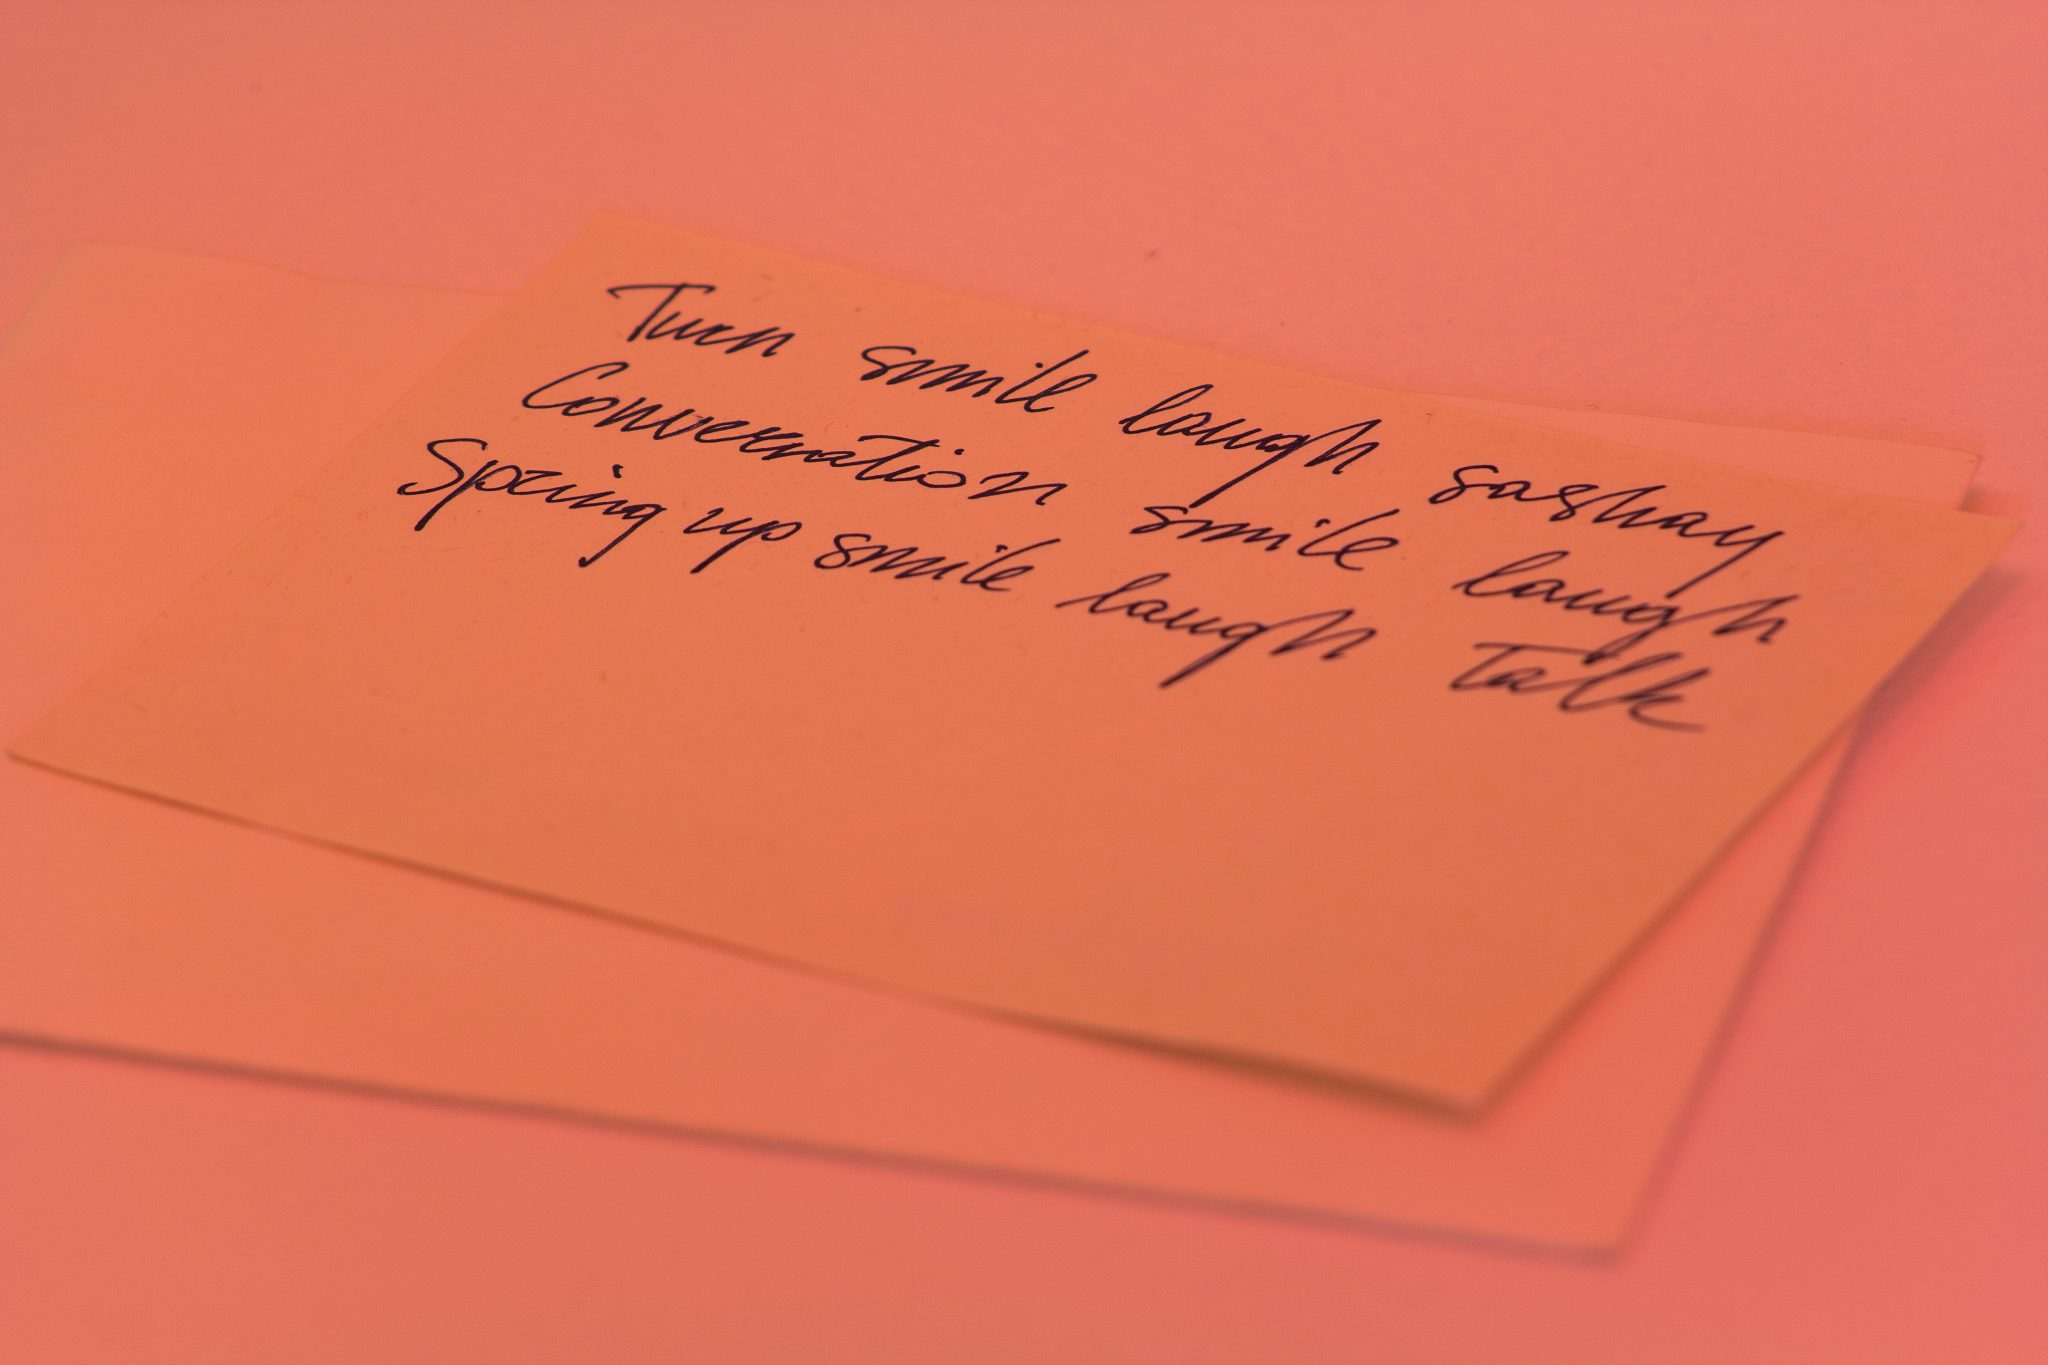 Turn smile laugh sashay
Conversation smile laugh
Spring up smile laugh talk